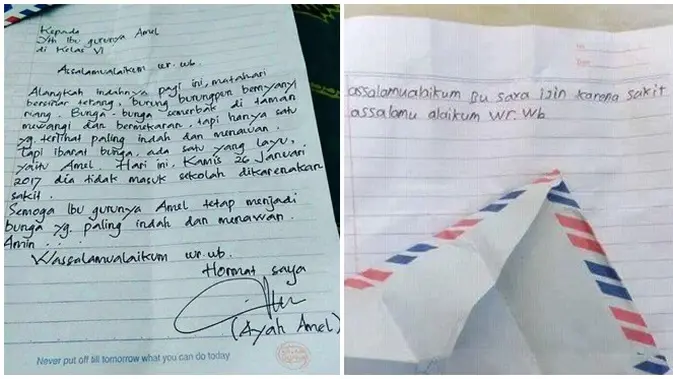 Kepada
Yth Ibu gurunya Amel
di Kelas VI
Assalamualaikum wr. wb.
Alangkah indahnya pagi ini, matahari
bersinar terang, burung burungpun bernyanyi
riang. Bunga-bunga semerbak di taman
mewangi dan bermekaran, tapi hanya satu
yg. terlihat paling indah dan menawan.
Tapi ibarat bunga, ada satu yang layu,
yaitu Amel. Hari ini, Kamis 26 Januari
2017 dia tidak masuk sekolah dikarenakan
sakit.
Semoga Ibu gurunya Amel tetap menjadi
bunga yg. paling indah dan menawan.
Amin...
Wassalamualaikum wr. wb.
Hormat saya
(Ayah Amel)
Never put off till tomorrow what you can do today
assalamualaikum Bu saya izin karena sakit
assalamu alaikum wr. wb